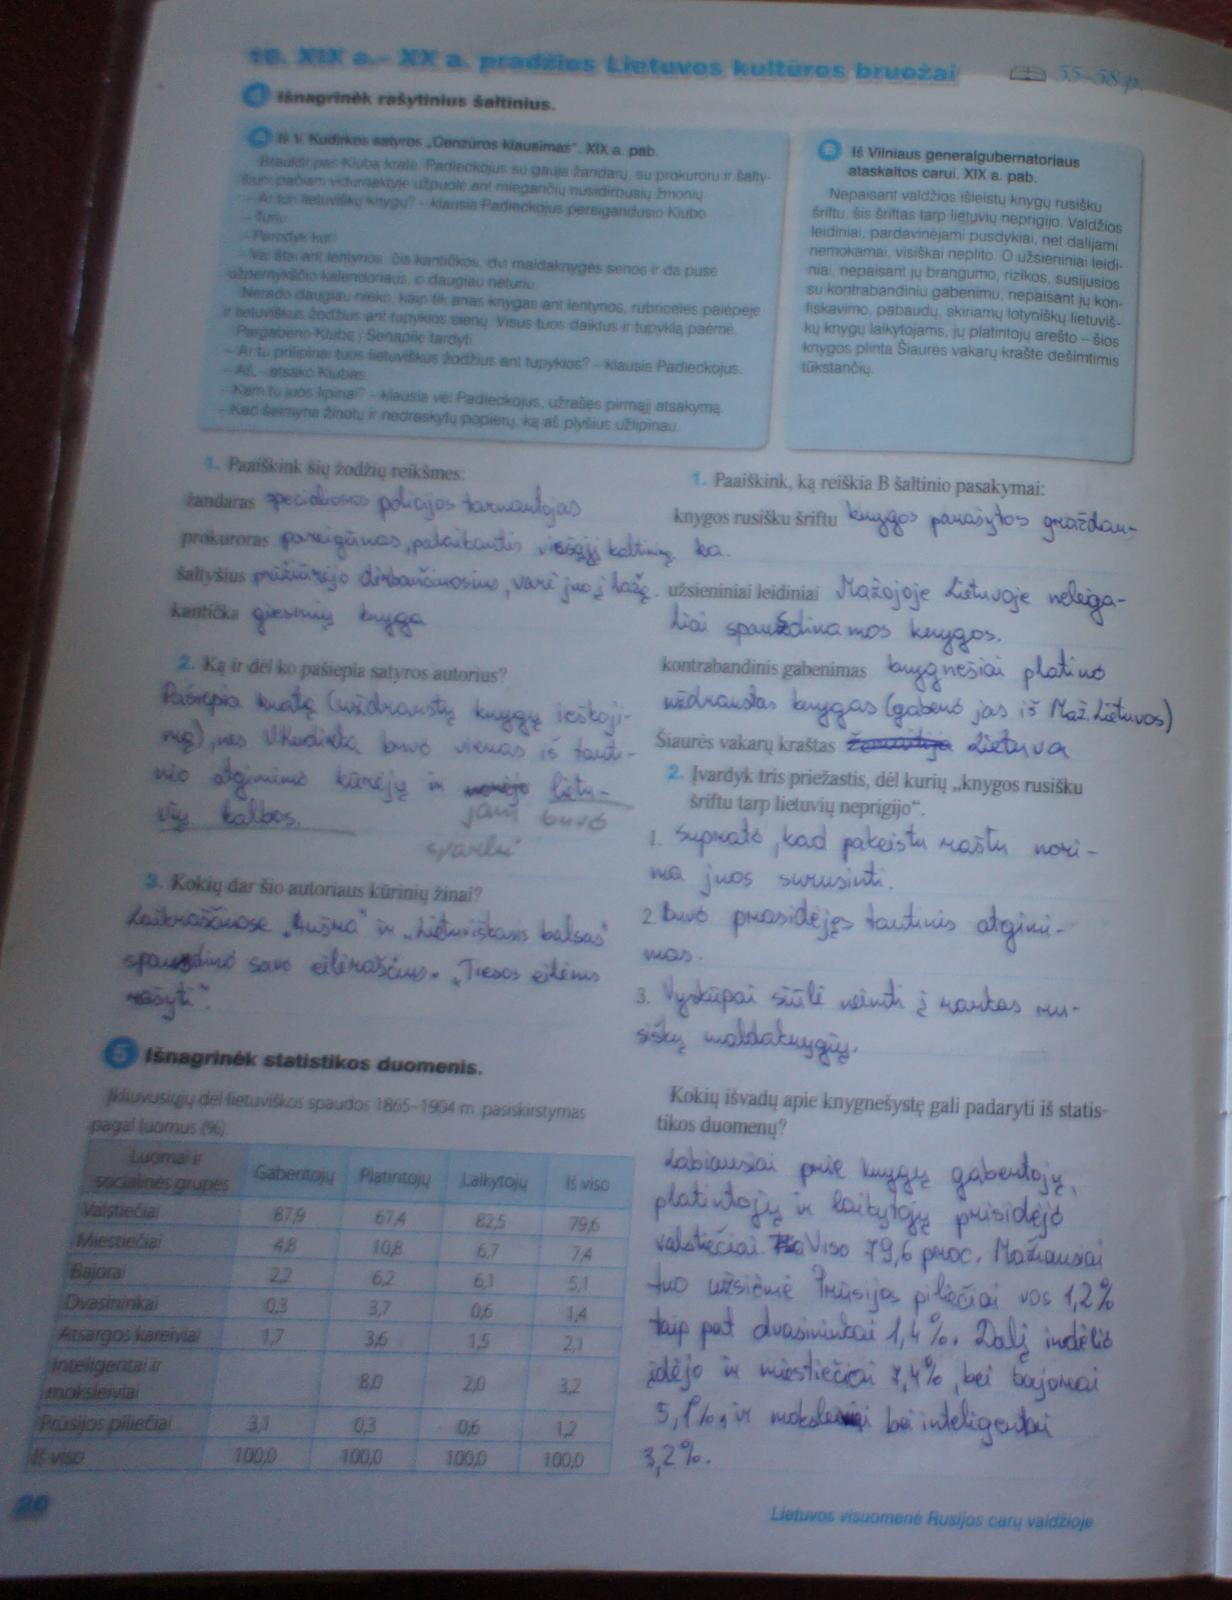 16. XIX a.– XX a. pradžios Lietuvos kultūros bruožai
55–58 p.
4 Išnagrinėk rašytinius šaltinius.
A Iš V. Kudirkos satyros „Cenzūros klausimas“. XIX a. pab.
Braudėt pas Klubą krata. Padieckojus su gauja žandarų, su prokuroru ir šalty-
šium pačiam vidurnaktyje užpuolė ant miegančių nusidirbusių žmonių.
– Ar turi lietuviškų knygų? – klausia Padieckojus persigandusio Klubo.
– Turiu.
– Parodyk kur!
– Vai štai ant lentynos: čia kantičkos, dvi maldaknygės senos ir da pusė
užpernykščio kalendoriaus, o daugiau neturiu.
Nerado daugiau nieko, kaip tik anas knygas ant lentynos, rubricėles palėpėje
ir lietuviškus žodžius ant tupyklos sienų. Visus tuos daiktus ir tupyklą paėmė.
Pargabeno Klubą į Senapilę tardyti.
– Ar tu prilipinai tuos lietuviškus žodžius ant tupyklos? – klausia Padieckojus.
– Aš, – atsako Klubas.
– Kam tu juos lipinai? – klausia vėl Padieckojus, užrašęs pirmąjį atsakymą.
– Kad šeimyna žinotų ir nedraskytų popierų, ką aš plyšius užlipinau.
B Iš Vilniaus generalgubernatoriaus
ataskaitos carui. XIX a. pab.
Nepaisant valdžios išleistų knygų rusišku
šriftu, šis šriftas tarp lietuvių neprigijo. Valdžios
leidiniai, pardavinėjami pusdykiai, net dalijami
nemokamai, visiškai neplito. O užsieniniai leidi-
niai, nepaisant jų brangumo, rizikos, susijusios
su kontrabandiniu gabenimu, nepaisant jų kon-
fiskavimo, pabaudų, skiriamų lotyniškų lietuviš-
kų knygų laikytojams, jų platintojų arešto – šios
knygos plinta Šiaurės vakarų krašte dešimtimis
tūkstančių.
1. Paaiškink šių žodžių reikšmes:
žandaras specialiosios policijos tarnautojas
prokuroras pareigūnas, palaikantis viešąjį kaltinimą
šaltyšius prižiūrėjo dirbančiuosius, varė juo į lažą.
kantička giesmių knyga
2. Ką ir dėl ko pašiepia satyros autorius?
Pašiepia kratą (uždraustų knygų ieškoji-
mą), nes V.Kudirka buvo vienas iš tauti-
nio atgimimo kūrėjų ir norėjo lietu-
vių kalbos.
jam buvo
svarbu
3. Kokių dar šio autoriaus kūrinių žinai?
Laikraščiuose „Aušra“ ir „Lietuviškasis balsas“
spausdino savo eilėraščius. „Tiesos eilėms
rašyti“.
1. Paaiškink, ką reiškia B šaltinio pasakymai:
knygos rusišku šriftu knygos parašytos graždan-
ka.
užsieniniai leidiniai Mažojoje Lietuvoje nelega-
liai spausdinamos knygos.
kontrabandinis gabenimas knygnešiai platino
uždraustas knygas (gabeno jas iš Maž. Lietuvos)
Šiaurės vakarų kraštas Žemaitija Lietuva
2. Įvardyk tris priežastis, dėl kurių „knygos rusišku
šriftu tarp lietuvių neprigijo“.
1. Suprato, kad pakeistu raštu nori-
ma juos surusinti.
2. Buvo prasidėjęs tautinis atgimi-
mas.
3. Vyskupai siūlė neimti į rankas ru-
siškų maldaknygių.
5 Išnagrinėk statistikos duomenis.
Įkliuvusiųjų dėl lietuviškos spaudos 1865–1904 m. pasiskirstymas
pagal luomus (%).
Luomai ir
socialinės grupės Gabentojų Platintojų Laikytojų Iš viso
Valstiečiai 87,9 67,4 82,5 79,6
Miestiečiai 4,8 10,8 6,7 7,4
Bajorai 2,2 6,2 6,1 5,1
Dvasininkai 0,3 3,7 0,6 1,4
Atsargos kareiviai 1,7 3,6 1,5 2,1
Inteligentai ir
moksleiviai 8,0 2,0 3,2
Prūsijos piliečiai 3,1 0,3 0,6 1,2
Iš viso 100,0 100,0 100,0 100,0
Kokių išvadų apie knygnešystę gali padaryti iš statis-
tikos duomenų?
Labiausiai prie knygų gabentojų,
platintojų ir laikytojų prisidėjo
valstiečiai. Viso 79,6 proc. Mažiausiai
tuo užsiėmė Prūsijos piliečiai vos 1,2%
taip pat dvasininkai 1,4%. Dalį indėlio
įdėjo ir miestiečiai 7,4%, bei bajorai
5,1%, ir moksleiviai bei inteligentai
3,2%.
20
Lietuvos visuomenė Rusijos carų valdžioje